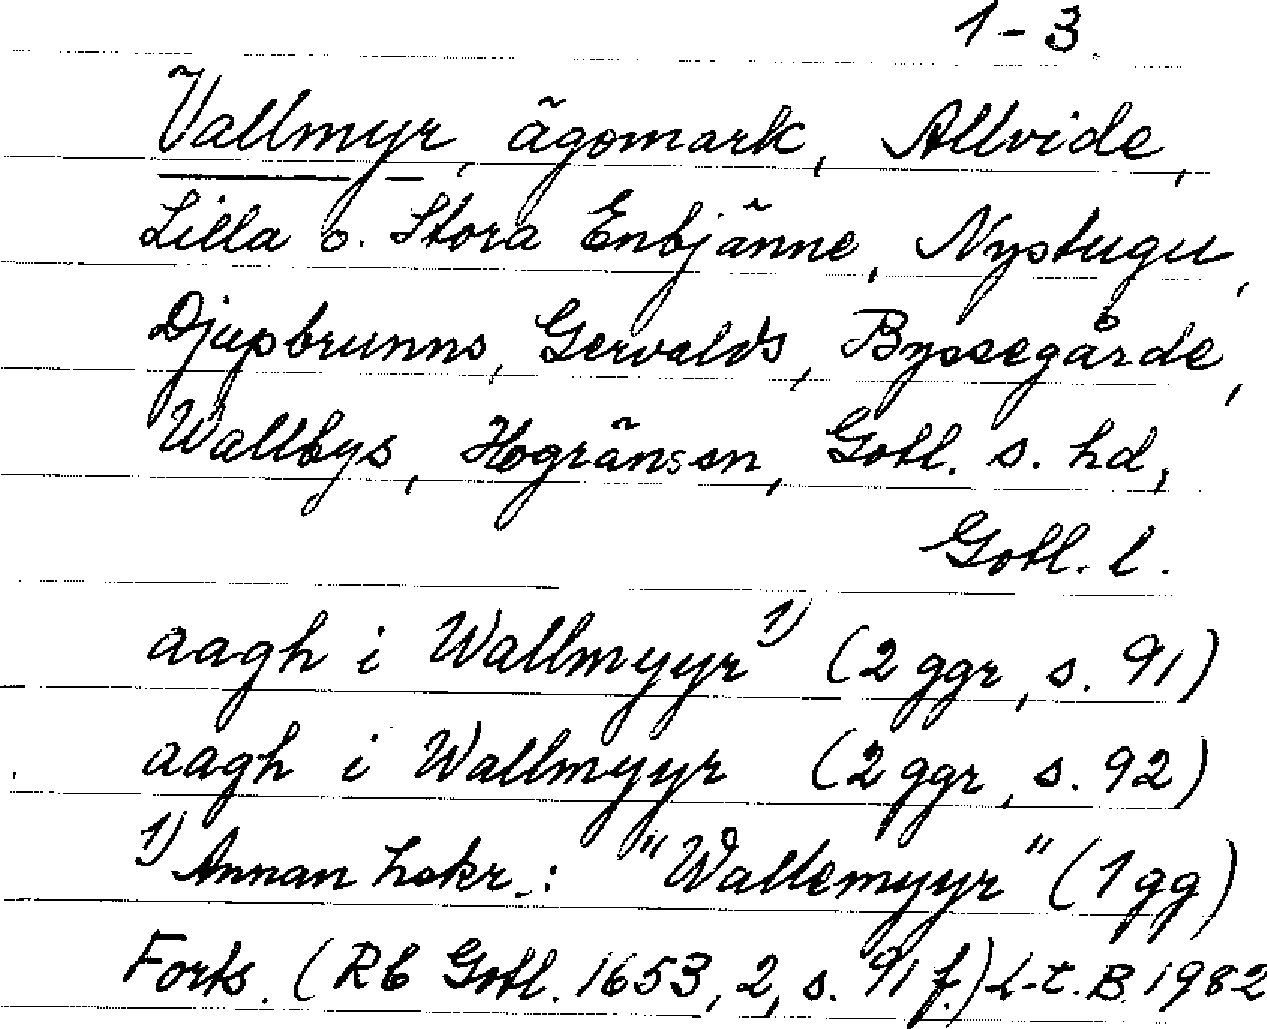 1-3.
Vallmyr, ägomark, Allvide,
Lilla o. Stora Enbjänne, Nystugu,
Djupbrunns, Gervalds, Byssegårde,
Wallbys, Hogränsen, Gotl. s. hd,
Gotl. l.
aagh i Wallmyyr 1) (2 ggr, s. 91)
aagh i Wallmyyr (2 ggr, s. 92)
1) Annan hskr.: "Wallemyyr" (1 gg)
Forts. (Rb Gotl. 1653, 2, s. 91 f.) L-t. B. 1982